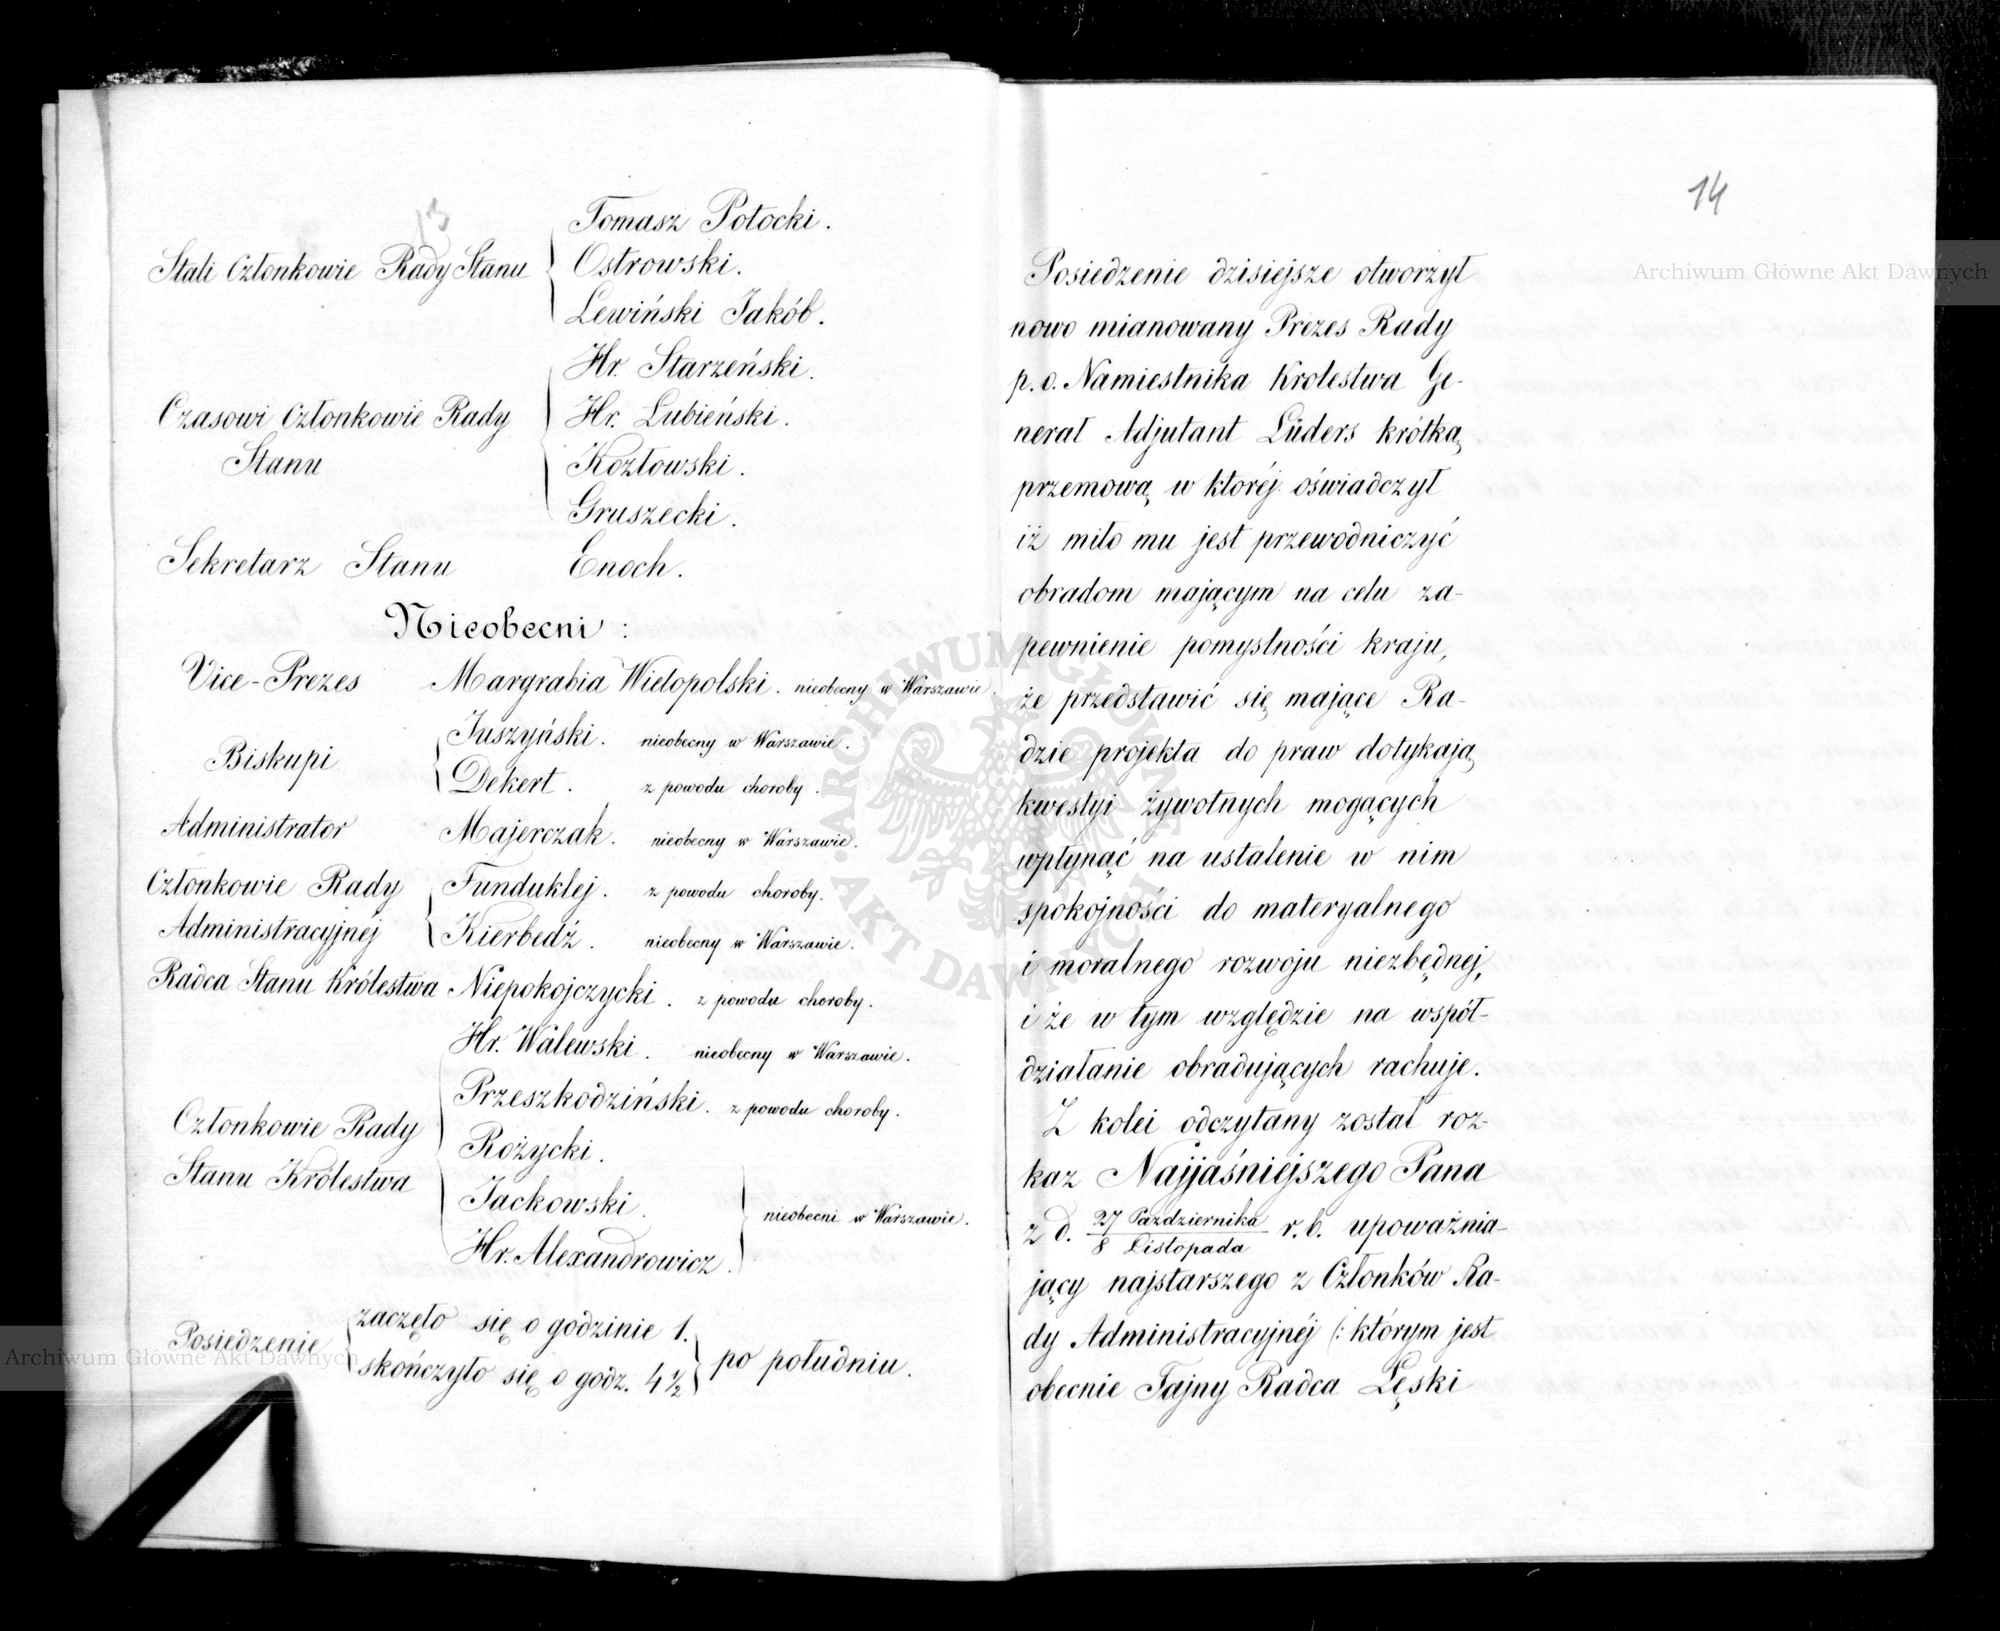 13
Stali Członkowie Rady Stanu
Tomasz Potocki.
Ostrowski.
Lewiński Jakób.
Czasowi Członkowie Rady
Stanu
Hr. Starzeński.
Hr. Lubieński.
Kozłowski.
Gruszecki.
Sekretarz Stanu Enoch.
Nieobecni:
Vice-Prezes Margrabia Wielopolski. nieobecny w Warszawie.
Biskupi
Juszyński. nieobecny w Warszawie.
Dekert. z powodu choroby.
Administrator Majerczak. nieobecny w Warszawie.
Członkowie Rady
Administracyjnéj
Funduklej. z powodu choroby.
Kierbedź. nieobecny w Warszawie.
Radca Stanu Królestwa Niepokojczycki. z powodu choroby.
Członkowie Rady
Stanu Królestwa
Hr. Walewski. nieobecny w Warszawie.
Przeszkodziński. z powodu choroby.
Rożycki.
Jackowski.
Hr. Alexandrowicz.
nieobecni w Warszawie.
Posiedzenie
zaczęło się o godzinie 1.
skończyło się o godz. 4 ½
po południu.
14
Posiedzenie dzisiejsze otworzył
nowo mianowany Prezes Rady
p. o. Namiestnika Krolestwa Ge-
nerał Adjutant Lüders krótką
przemową w któréj oświadczył
iż miło mu jest przewodniczyć
obradom mającym na celu za-
pewnienie pomyslności kraju,
że przedstawić się mające Ra-
dzie projekta do praw dotykają
kwestyi żywotnych mogących
wpłynąć na ustalenie w nim
spokojności do materyalnego
i moralnego rozwoju niezbędnej,
i że w tym względzie na współ-
działanie obradujących rachuje.
Z kolei odczytany został roz-
kaz Najjaśniejszego Pana
z d. 27 Pazdziernika / 8 Listopada r. b. upoważnia-
jący najstarszego z Członków Ra-
dy Administracyjnéj (: którym jest
obecnie Tajny Radca Łęski
Archiwum Główne Akt Dawnych
Archiwum Główne Akt Dawnych
ARCHIWUM GŁÓWNE AKT DAWNYCH